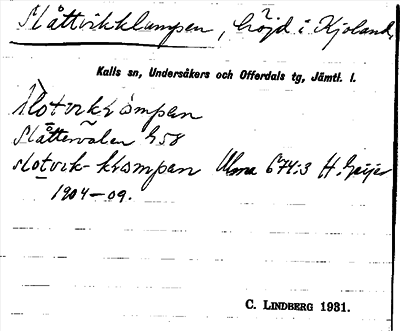 Slåttvikklumpen, höjd i Kjoland.
Kalls sn, Undersåkers och Offerdals tg, Jämtl. l.
Slåttervålen G58
slotvik-krompan Ulma 674:3 H. Geijer
1904–09.
C. LINDBERG 1931.